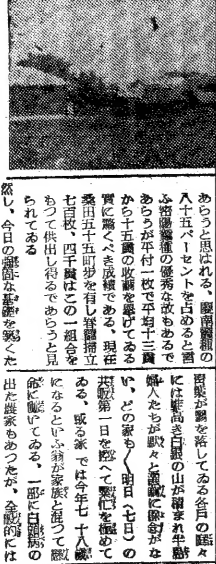 あらうと思はれる、慶南蠶種の
八十五パーセントを占めると言
ふ密陽蠶種の優秀な故もあるで
あらうが平付一枚で平均十三貫
から十五貫の収繭を擧げてゐる
實に驚くべき成績である、現在
桑田五十五町步を有し春蠶掃立
七百枚、四千貫はこの一組合を
もつて供出し得るであらうと見
られてゐる
然し、今日の强固な基礎を築くた
を落してゐる各戸の庭々
には高き白銀の山が積まれ半島
婦人たちが嬉々と選繭に餘念がな
い、どの家も〱明日（七日）の
共販第一日を控へて繁忙を極めて
ゐる、或る家では今年七十八歳
になるといふ翁が家族と混つて懸
命に働いてゐる、一部に白殭病の
出た農家もあつたが、全般的には